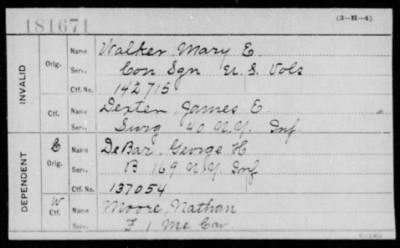 181671
(3-H-4)
INVALID
Orig.
Name Walker, Mary E.
Serv. Con Sgn U.S. Vols
Ctf. No. 142715
Ctf.
Name Dexter, James E.
Serv. Surg 40 N.Y. Inf
DEPENDENT
C
Orig.
Name DeBar, George H.
Serv. B 169 N.Y. Inf
Ctf. No. 137054
W
Ctf.
Name Moore, Nathan
Serv. F 1 Me Cav